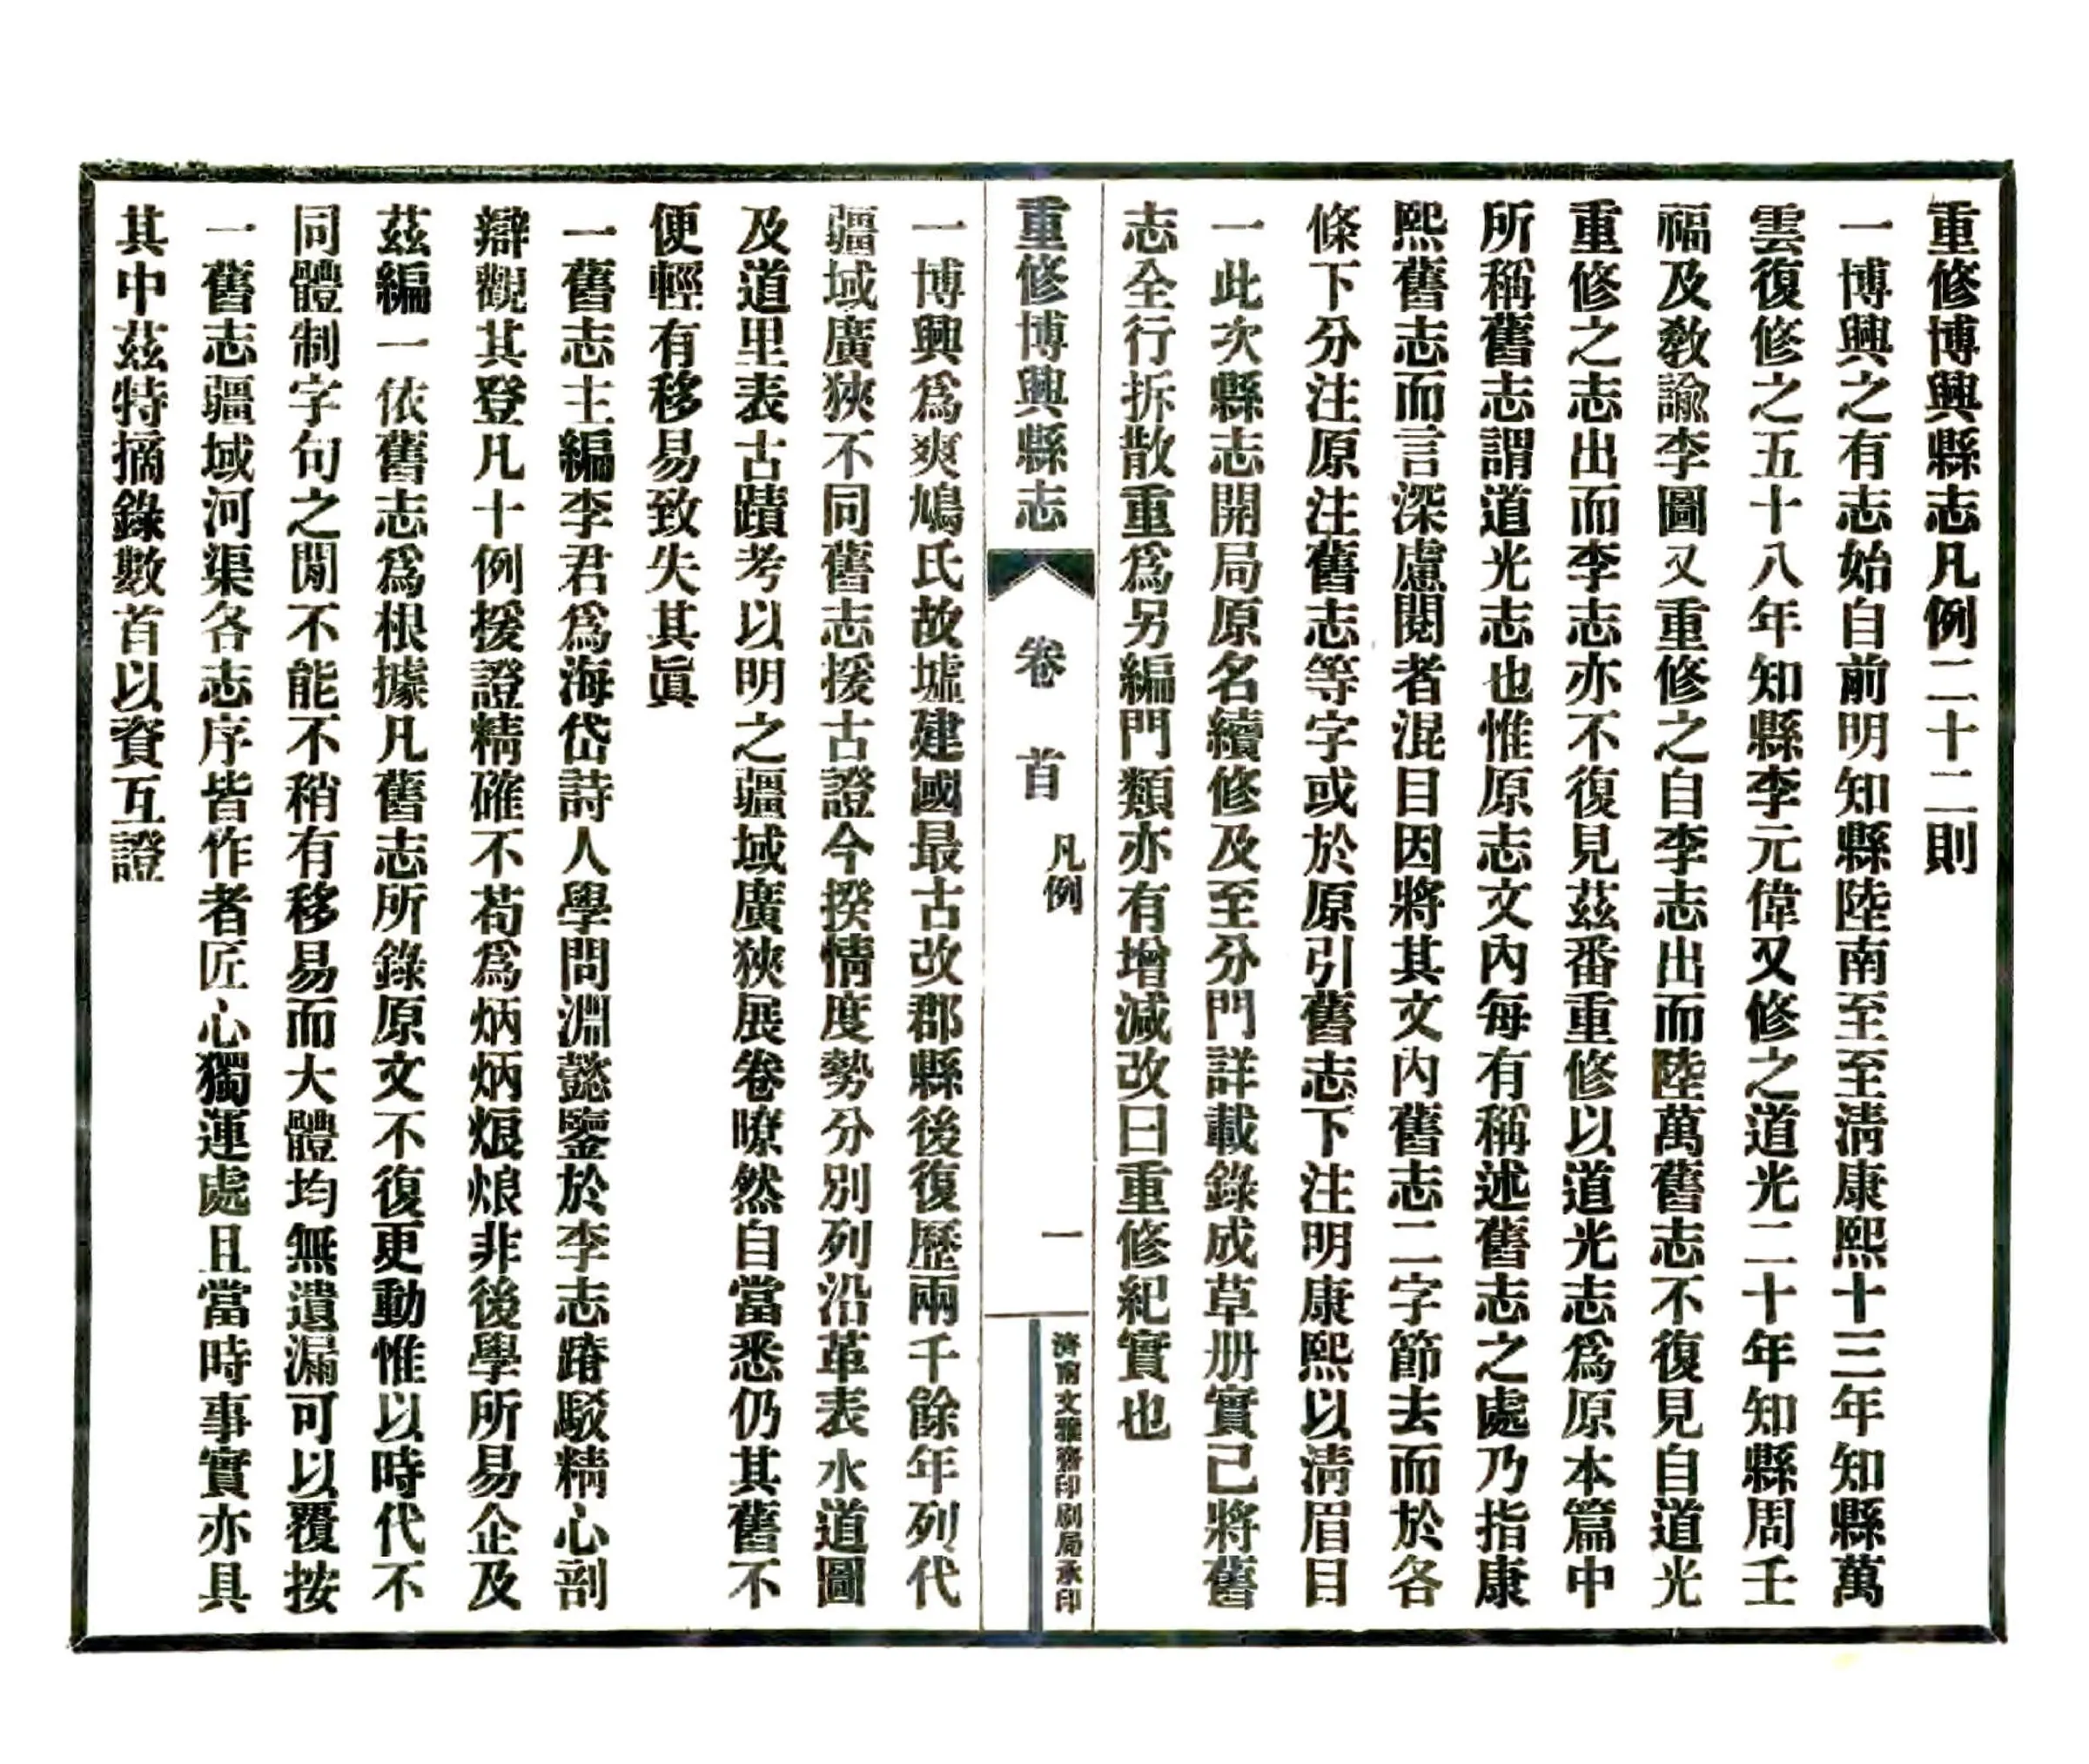 重修博興縣志凡例二十二則
一博興之有志始自前明知縣陸南至至淸康熙十三年知縣萬
雲復修之五十八年知縣李元偉又修之道光二十年知縣周壬
福及敎諭李圖又重修之自李志出而陸萬舊志不復見自道光
重修之志出而李志亦不復見茲番重修以道光志爲原本篇中
所稱舊志謂道光志也惟原志文內每有稱述舊志之處乃指康
熙舊志而言深慮閱者混目因將其文內舊志二字節去而於各
條下分注原注舊志等字或於原引舊志下注明康熙以淸眉目
一此次縣志開局原名續修及至分門詳載錄成草册實已將舊
志全行拆散重爲另編門類亦有增減改曰重修紀實也
重修博興縣志
卷首
凡例
一
濟南文雅齋印刷局承印
一博興爲爽鳩氏故墟建國最古改郡縣後復歷兩千餘年列代
疆域廣狹不同舊志援古證今揆情度勢分別列沿革表水道圖
及道里表古蹟考以明之疆域廣狹展卷瞭然自當悉仍其舊不
便輕有移易致失其眞
一舊志主編李君爲海岱詩人學問淵懿鑒於李志踳駁精心剖
辯觀其登凡十例援證精確不苟爲炳炳烺烺非後學所易企及
茲編一依舊志爲根據凡舊志所錄原文不復更動惟以時代不
同體制字句之閒不能不稍有移易而大體均無遺漏可以覆按
一舊志疆域河渠各志序皆作者匠心獨運處且當時事實亦具
其中茲特摘錄數首以資互證